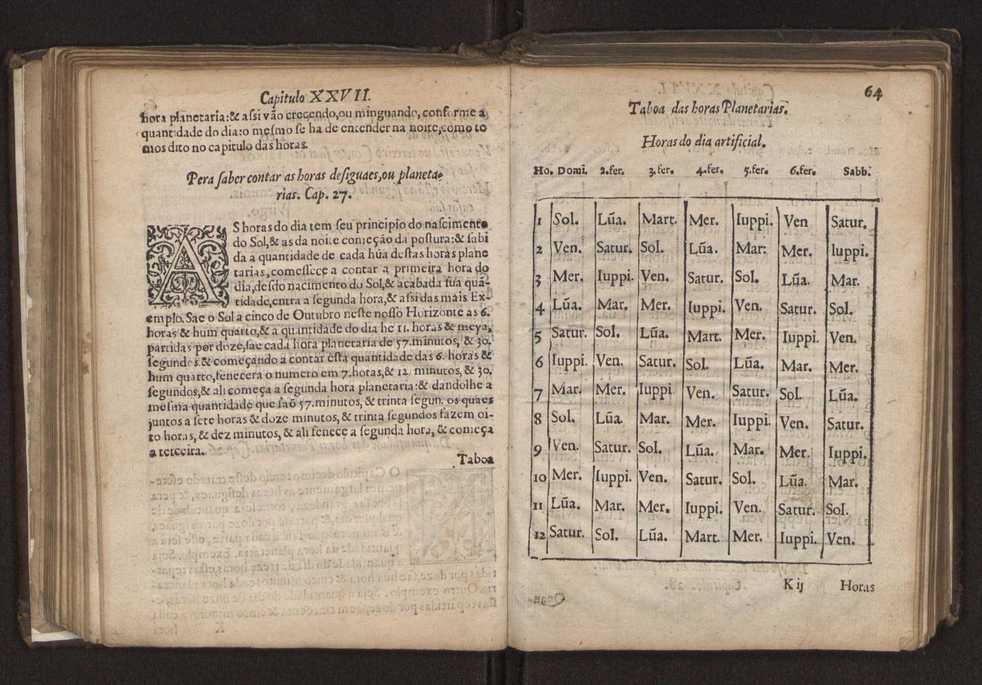 Capitulo XXVII.
hora planetaria:& assi vão crecendo,ou minguando, conforme a
quantidade do dia:o mesmo se ha de entender na noite,como to
mos dito no capitulo das horas.
Pera saber contar as horas desiguaes,ou planeta-
rias. Cap. 27.
AS horas do dia tem seu principio do nascimento
do Sol,& as da noite começão da postura:& sabi
da a quantidade de cada hũa destas horas plane
tarias,comessece a contar a primeira hora do
dia,desdo nacimento do Sol,& acabada sua quã-
tidade,entra a segunda hora,& assi das mais Ex-
emplo. Sae o Sol a cinco de Outubro neste nosso Horizonte as 6.
horas & hum quarto,& a quantidade do dia he 11. horas & meya,
partidas por doze,sae cada hora planetaria de 57.minutos, & 30.
segundos & começando a contar esta quantidade das 6. horas &
hum quarto,fenecera o numero em 7.horas,& 12. minutos, & 30.
segundos,& ali começa a segunda hora planetaria:& dandolhe a
mesma quantidade que saõ 57.minutos, & trinta segun. os quaes
juntos a sete horas & doze minutos, & trinta segundos fazem oi-
to horas, & dez minutos, & ali fenece a segunda hora, & começa
a terceira.
Taboa
64
Taboa das horas Planetarias.
Horas do dia artificial.
Ho. Domi. 2.fer. 3.fer. 4.fer. 5.fer. 6.fer. Sabb.
1 Sol. Lũa. Mart. Mer. Iuppi. Ven Satur.
2 Ven. Satur. Sol. Lũa. Mar: Mer. Iuppi.
3 Mer. Iuppi. Ven. Satur. Sol. Lũa. Mar.
4 Lũa. Mar. Mer. Iuppi. Ven. Satur. Sol.
5 Satur. Sol. Lũa. Mart. Mer. Iuppi. Ven.
6 Iuppi. Ven. Satur. Sol. Lũa. Mar. Mer.
7 Mar. Mer. Iuppi Ven. Satur. Sol. Lũa.
8 Sol. Lũa. Mar. Mer. Iuppi. Ven. Satur.
9 Ven. Satur. Sol. Lũa. Mar. Mer. Iuppi.
10 Mer. Iuppi. Ven. Satur. Sol. Lũa. Mar.
11 Lũa. Mar. Mer. Iuppi. Ven. Satur. Sol.
12 Satur. Sol. Lũa. Mart. Mer. Iuppi. Ven.
K ij Horas